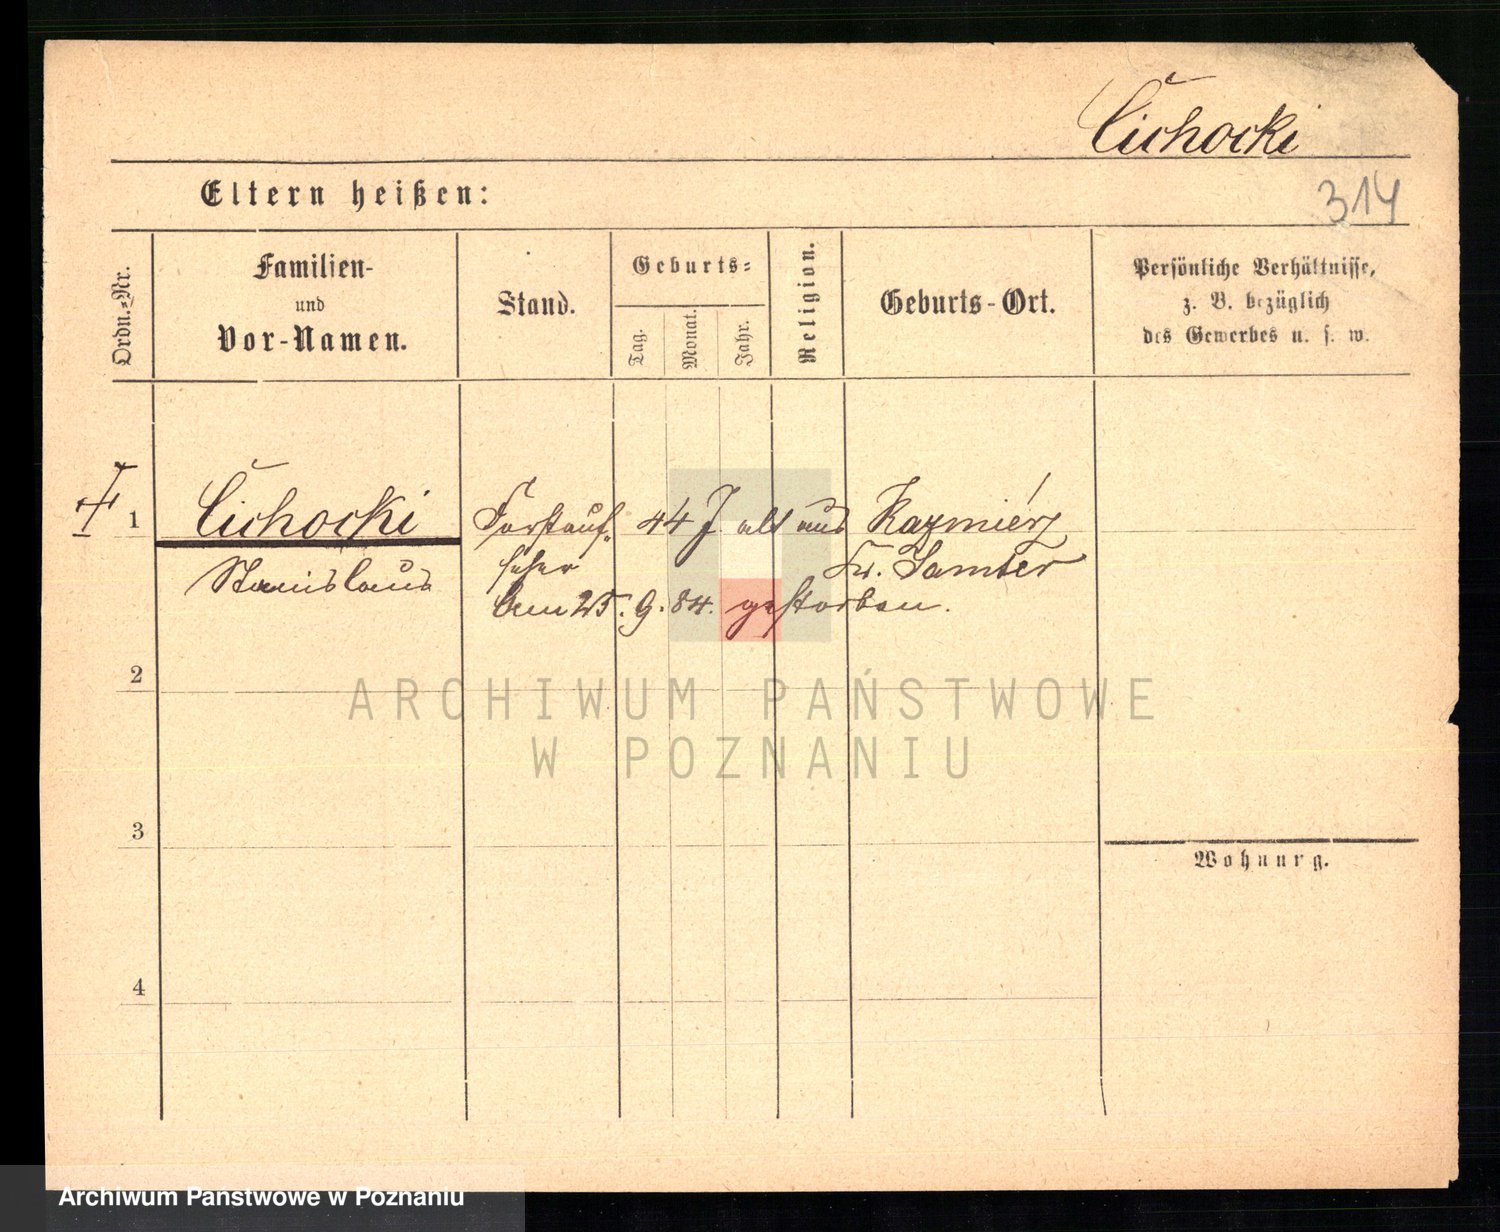 Cichocki
Eltern heißen:
314
Ordn.-Nr.
Familien-
und
Vor-Namen.
Stand.
Geburts-
Tag.
Monat.
Jahr.
Religion.
Geburts-Ort.
Persönliche Verhältnisse,
z. B. bezüglich
des Gewerbes u. s. w.
1 Cichocki Forstauf- 44 J. alt aus Kazmierz
Stanislaus seher Kr. Samter
am 25. 9. 84. gestorben.
2
ARCHIWUM PAŃSTWOWE
W POZNANIU
3
Wohnung.
4
Archiwum Państwowe w Poznaniu